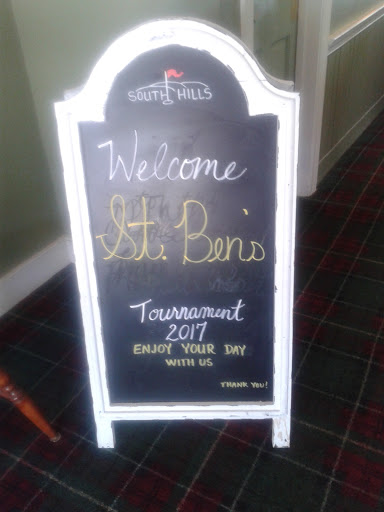 SOUTH HILLS
Welcome
St. Ben's
Tournament
2017
ENJOY YOUR DAY
WITH US
THANK YOU!